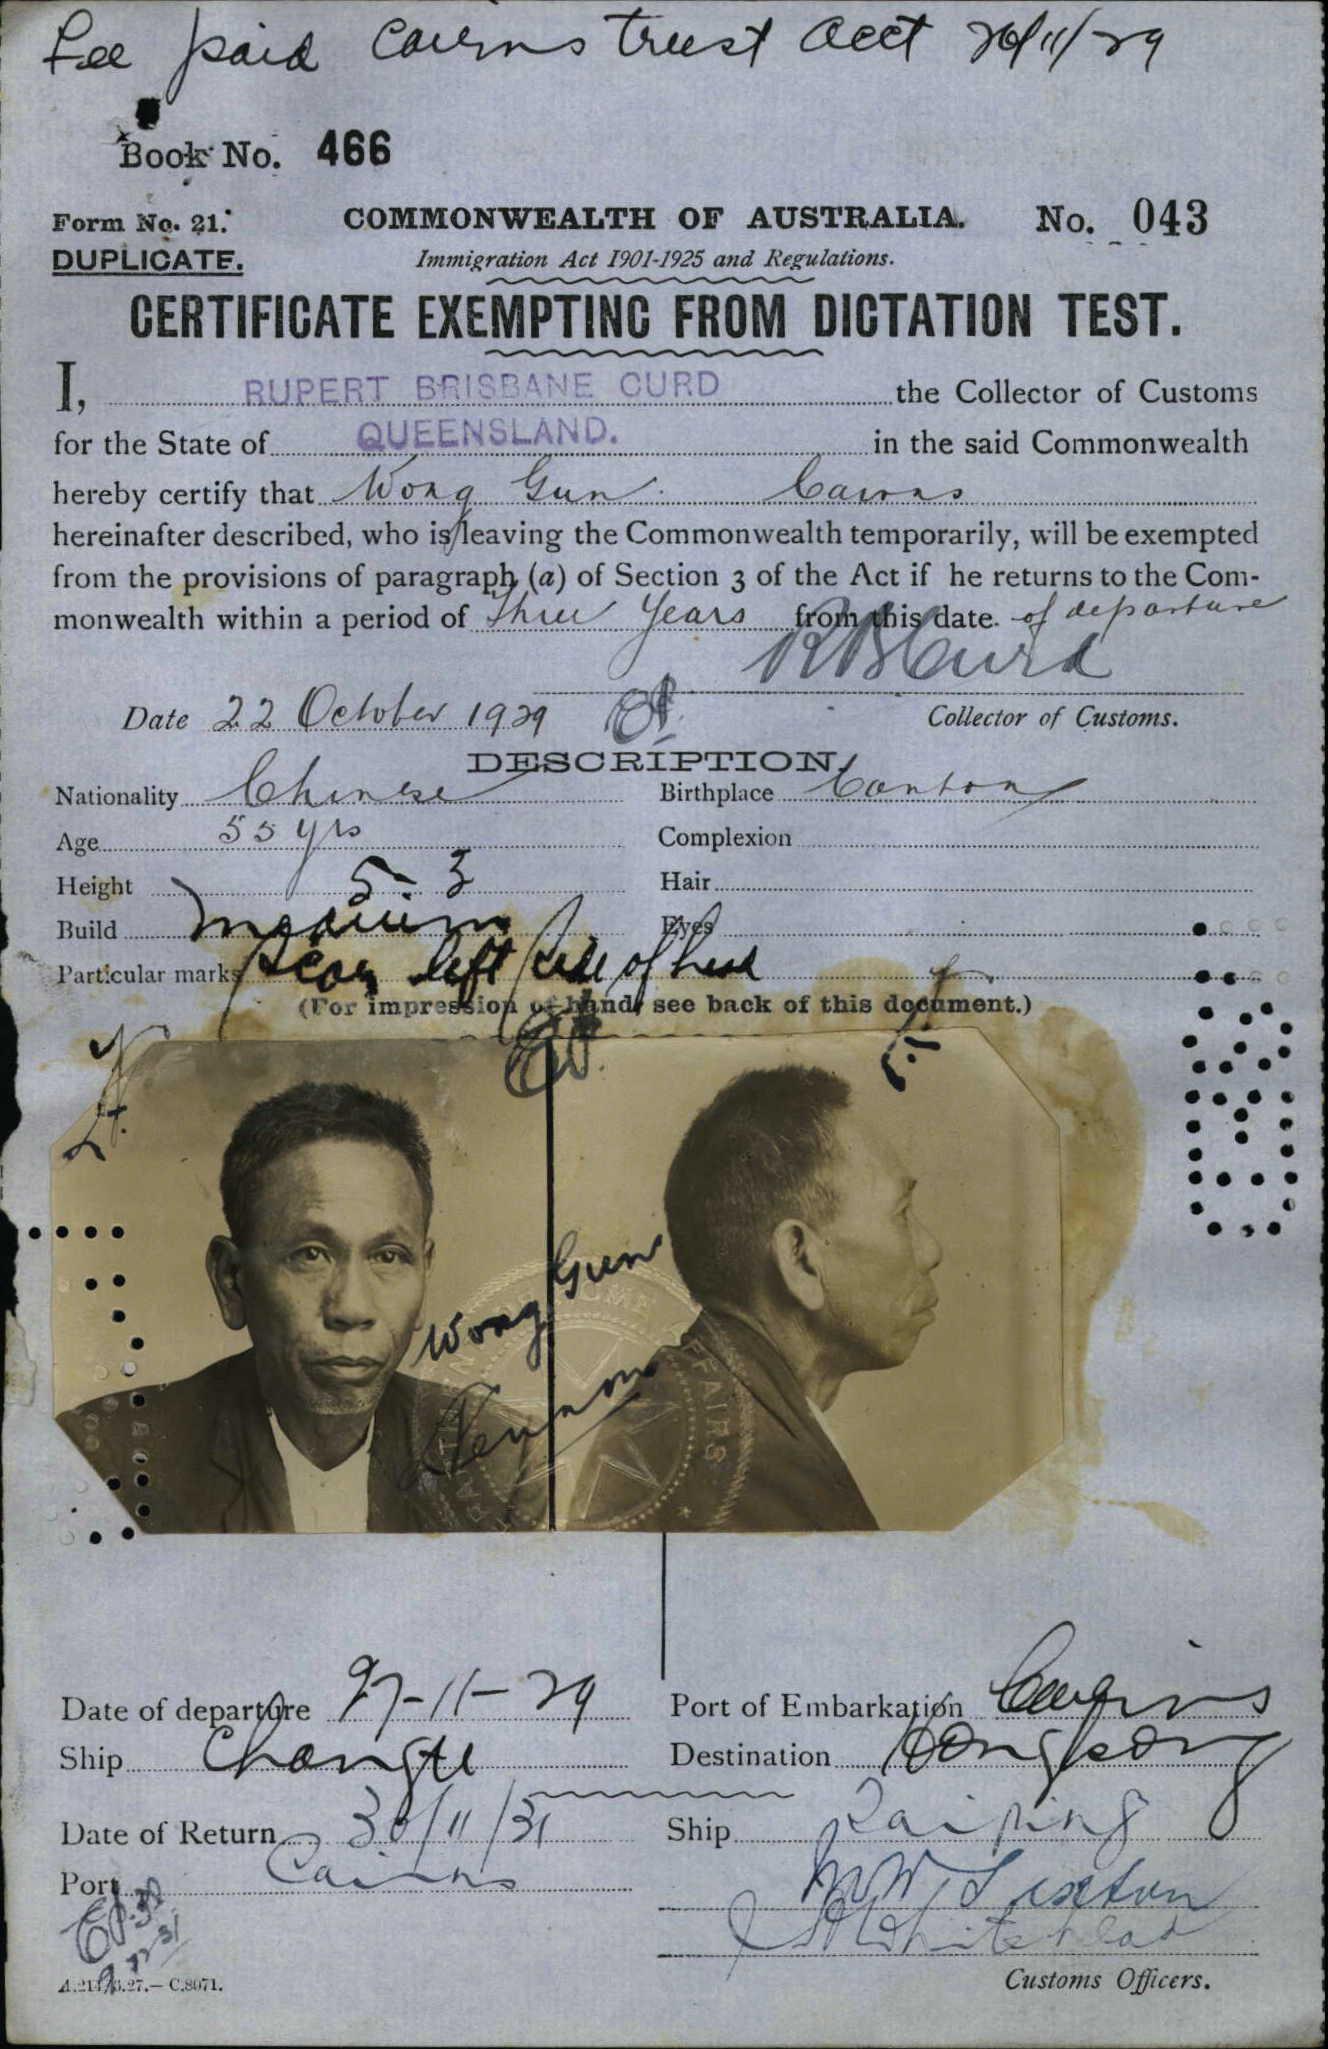 Fee paid Cairns trust acct 26/11/29
Book No. 466
Form No. 21. COMMONWEALTH OF AUSTRALIA. No. 043
DUPLICATE. Immigration Act 1901-1925 and Regulations.
CERTIFICATE EXEMPTING FROM DICTATION TEST.
I, RUPERT BRISBANE CURD the Collector of Customs
for the State of QUEENSLAND. in the said Commonwealth
hereby certify that Wong Gun Cairns
hereinafter described, who is leaving the Commonwealth temporarily, will be exempted
from the provisions of paragraph (a) of Section 3 of the Act if he returns to the Com-
monwealth within a period of three years from this date of departure
R B Curd
Date 22 October 1929 Collector of Customs.
DESCRIPTION.
Nationality Chinese Birthplace Canton
Age 55 yrs Complexion
Height 5. 3 Hair
Build medium Eyes
Particular marks Scar left side of head
(For impression of hand, see back of this document.)
Wong Gun
HOME AFFAIRS
Date of departure 27-11-29 Port of Embarkation Cairns
Ship Changte Destination Hongkong
Date of Return 30/11/31 Ship Taiping
Port Cairns
Whitehead
Customs Officers.
C.8071.